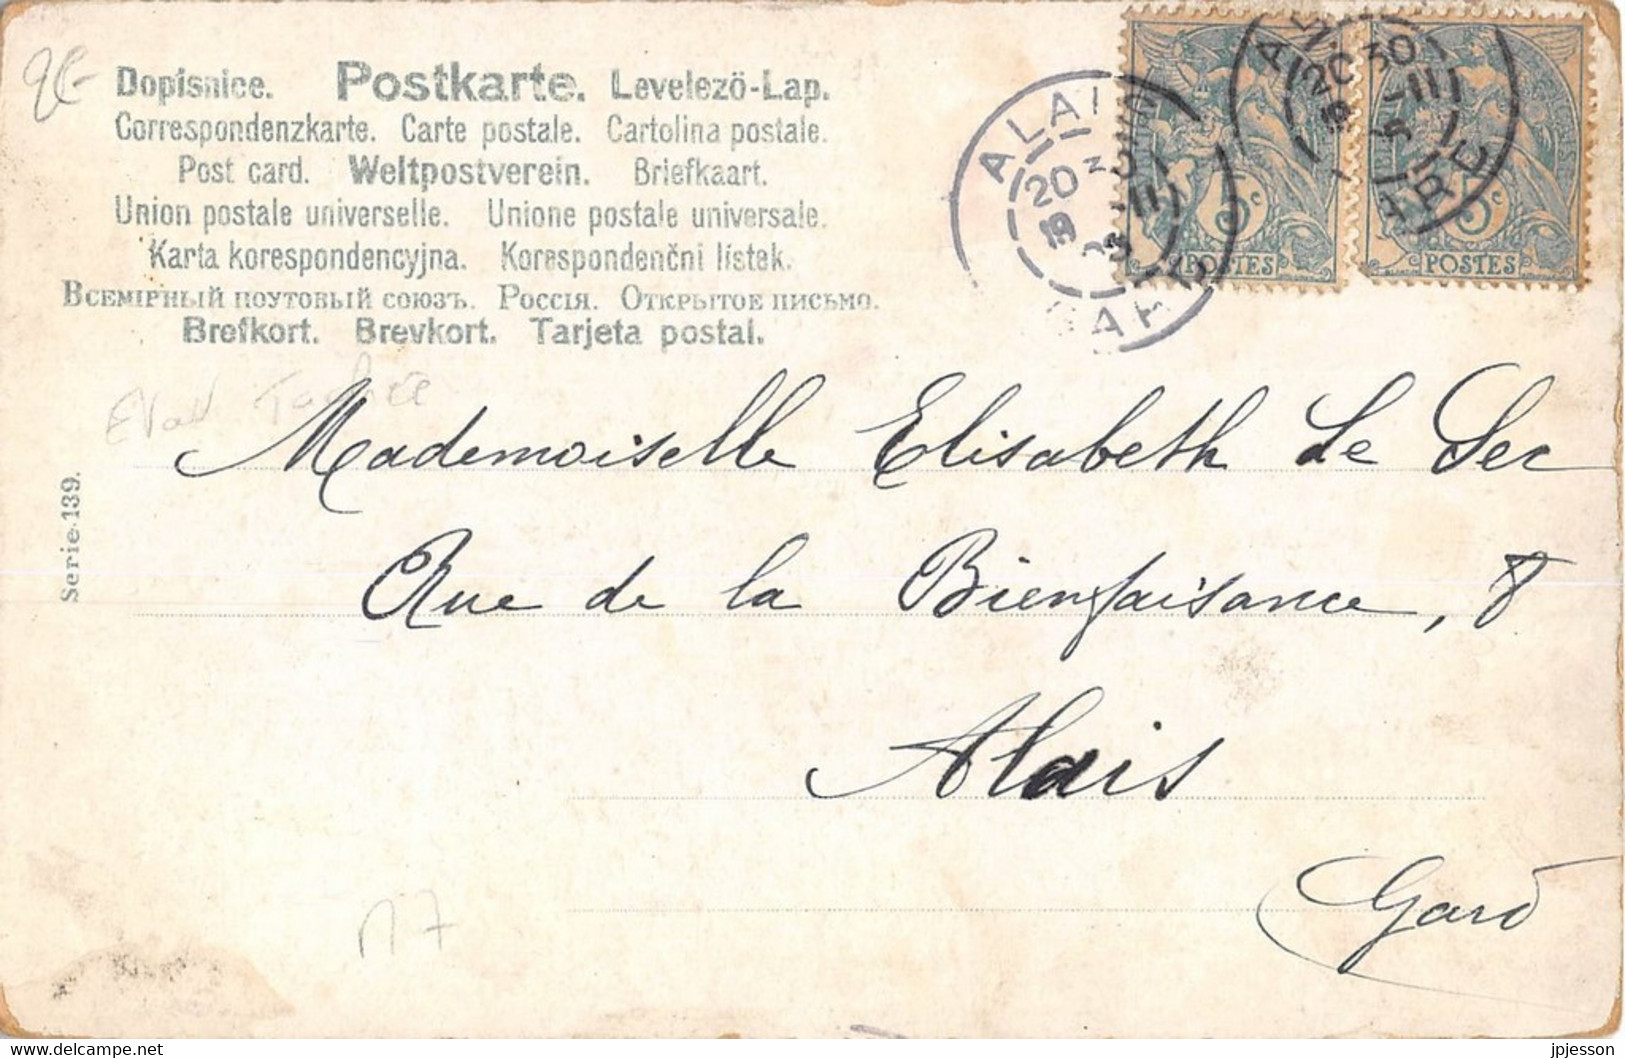 Dopisnice. Postkarte. Levelező-Lap.
Correspondenzkarte. Carte postale. Cartolina postale.
Post card. Weltpostverein. Briefkaart.
Union postale universelle. Unione postale universale.
Karta korespondencyjna. Korespondenční lístek.
Всемірный поутовый союзъ. Россія. Открытое письмо.
Brefkort. Brevkort. Tarjeta postal.
ALAIS
20 30
GARE
5c
POSTES
5c
POSTES
Serie 139.
Mademoiselle Elisabeth Le Sec
Rue de la Bienfaisance, 8
Alais
Gard
jpjesson